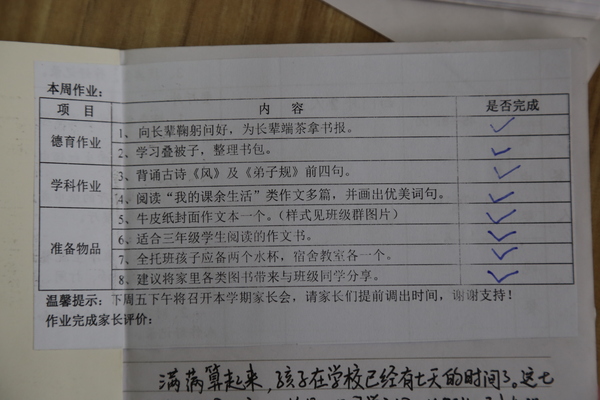 本周作业：
项 目 内 容 是否完成
德育作业 1、向长辈鞠躬问好，为长辈端茶拿书报。
2、学习叠被子，整理书包。
学科作业 3、背诵古诗《风》及《弟子规》前四句。
4、阅读“我的课余生活”类作文多篇，并画出优美词句。
准备物品 5、牛皮纸封面作文本一个。（样式见班级群图片）
6、适合三年级学生阅读的作文书。
7、全托班孩子应备两个水杯，宿舍教室各一个。
8、建议将家里各类图书带来与班级同学分享。
温馨提示：下周五下午将召开本学期家长会，请家长们提前调出时间，谢谢支持！
作业完成家长评价：
满满算起来，孩子在学校已经有七天的时间了。这七